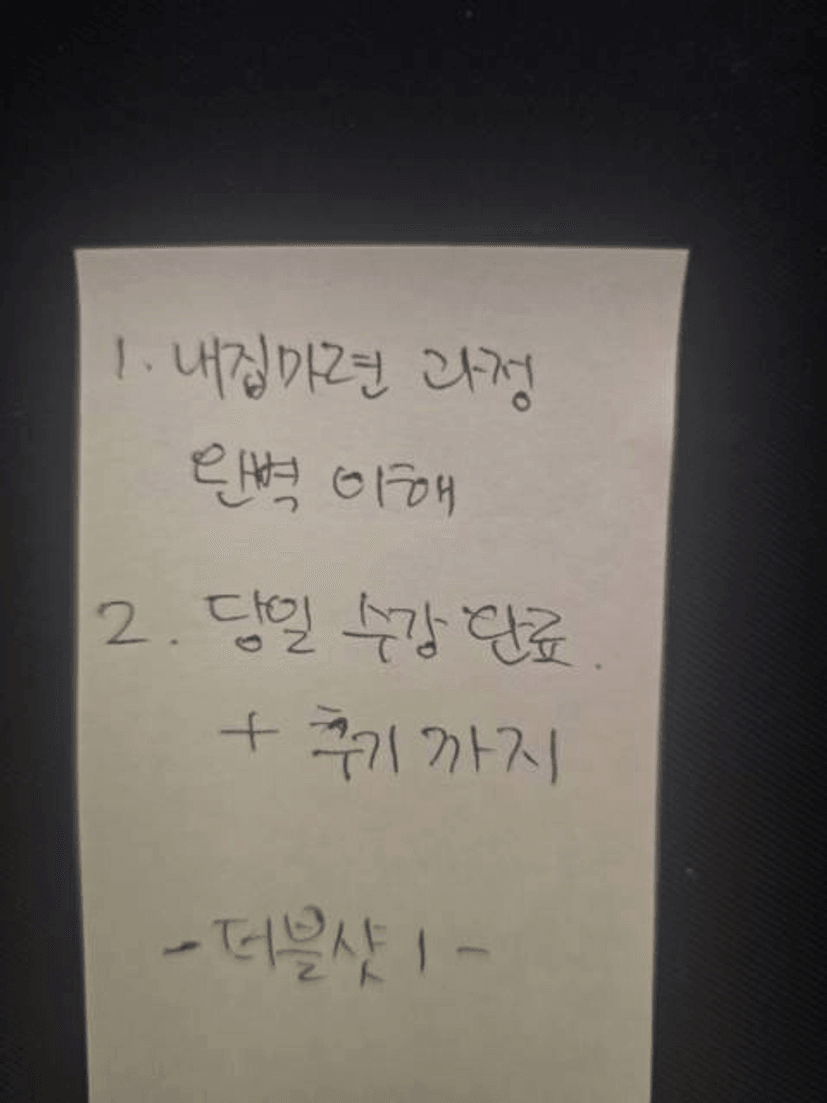 1. 내집마련 과정
완벽 이해
2. 당일 수강 완료.
+ 후기까지
- 더블샷 1 -